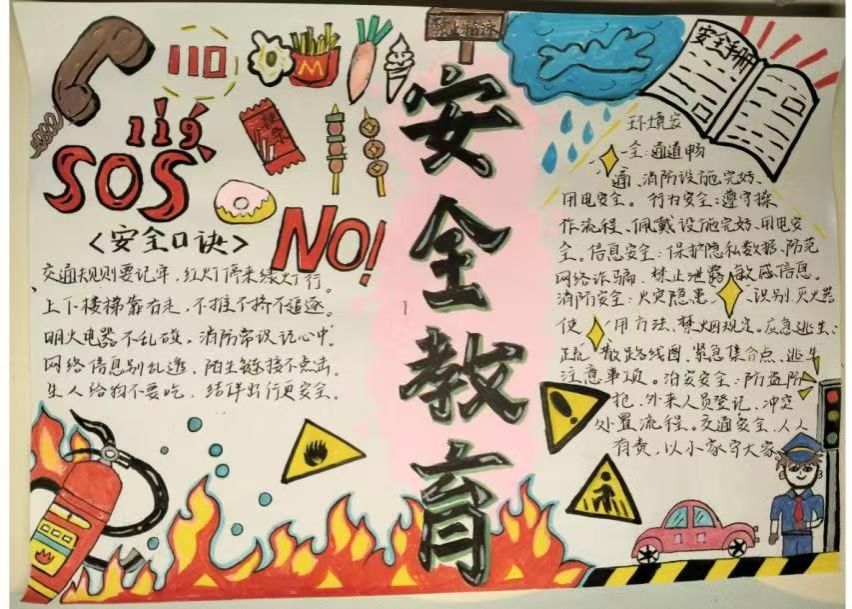 110
119
SOS
M
NO!
安全教育
安全手册
<安全口诀>
交通规则要记牢，红灯停来绿灯行。
上下楼梯靠右走，不推不挤不追逐。
明火电器不乱碰，消防常识记心中。
网络信息别乱透，陌生链接不点击。
生人给物不要吃，结伴出行更安全。
环境安
全：通道畅
通、消防设施完好、
用电安全。行为安全：遵守操
作流程、佩戴设施完好、用电安
全。信息安全：保护隐私数据、防范
网络诈骗，禁止泄露敏感信息。
消防安全：火灾隐患识别、灭火器
使用方法、禁烟规定。应急逃生：
疏散路线图、紧急集合点、逃生
注意事项。治安安全：防盗防
抢、外来人员登记、冲突
处置流程。交通安全，人人
有责，以小家守大家